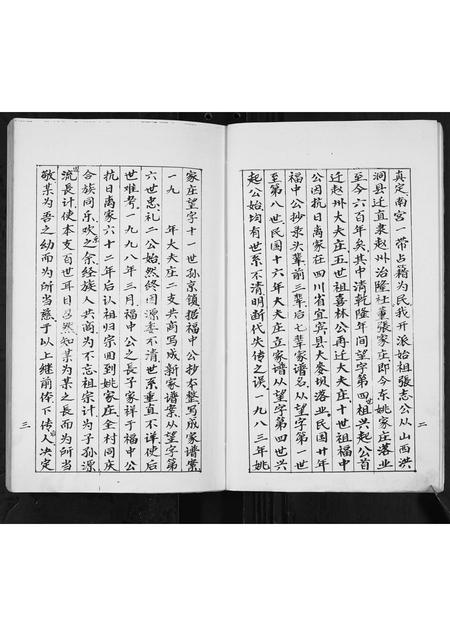 真定南宮一带占籍为民我开派始祖張志公从山西洪
洞县迁直隶赵州治隆社董張家庄即今东姚家庄落业
至今六百年矣其中清乾隆年间望字第四世祖兴起公首
迁赵州大夫庄五世祖喜林公再迁大夫庄十世祖福中
公因抗日离家在四川省宜宾县大麥坝落业。民国廿年
福中公抄录头輩前三輩后七輩家谱名从望字第一世
至第八世民国十六年大夫庄立家谱从望字第四世兴
起公始均有世系不清明断代失传之误一九八三年姚
二
家庄望字十一世孙京镇据福中公抄本整写成家谱棠
一九 年大夫庄二支共商写成新家谱棠从望字第
六世忠礼二公始然终因源委不清世系垂直不详使后
世难考一九九八年三月福中公之長子家祥于福中公
抗日离家六十二年后认祖归宗回到姚家庄全村同庆
合族同乐欢之余经族人共商为不忘祖宗计为子孙源
流長计使本支百世耳目昭然知某为某之長而为所当
敬某为吾之幼而为所当慈于以上继前俦下传人决定
三